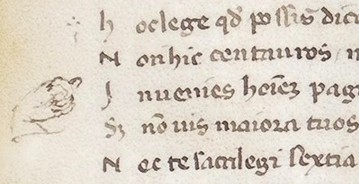 h oc lege qđ possiſ dice
N on hic centauros, n
I nuenies hoīez pagi
Sz nō uis maiora tuos
N ec te sacrilegi sextia